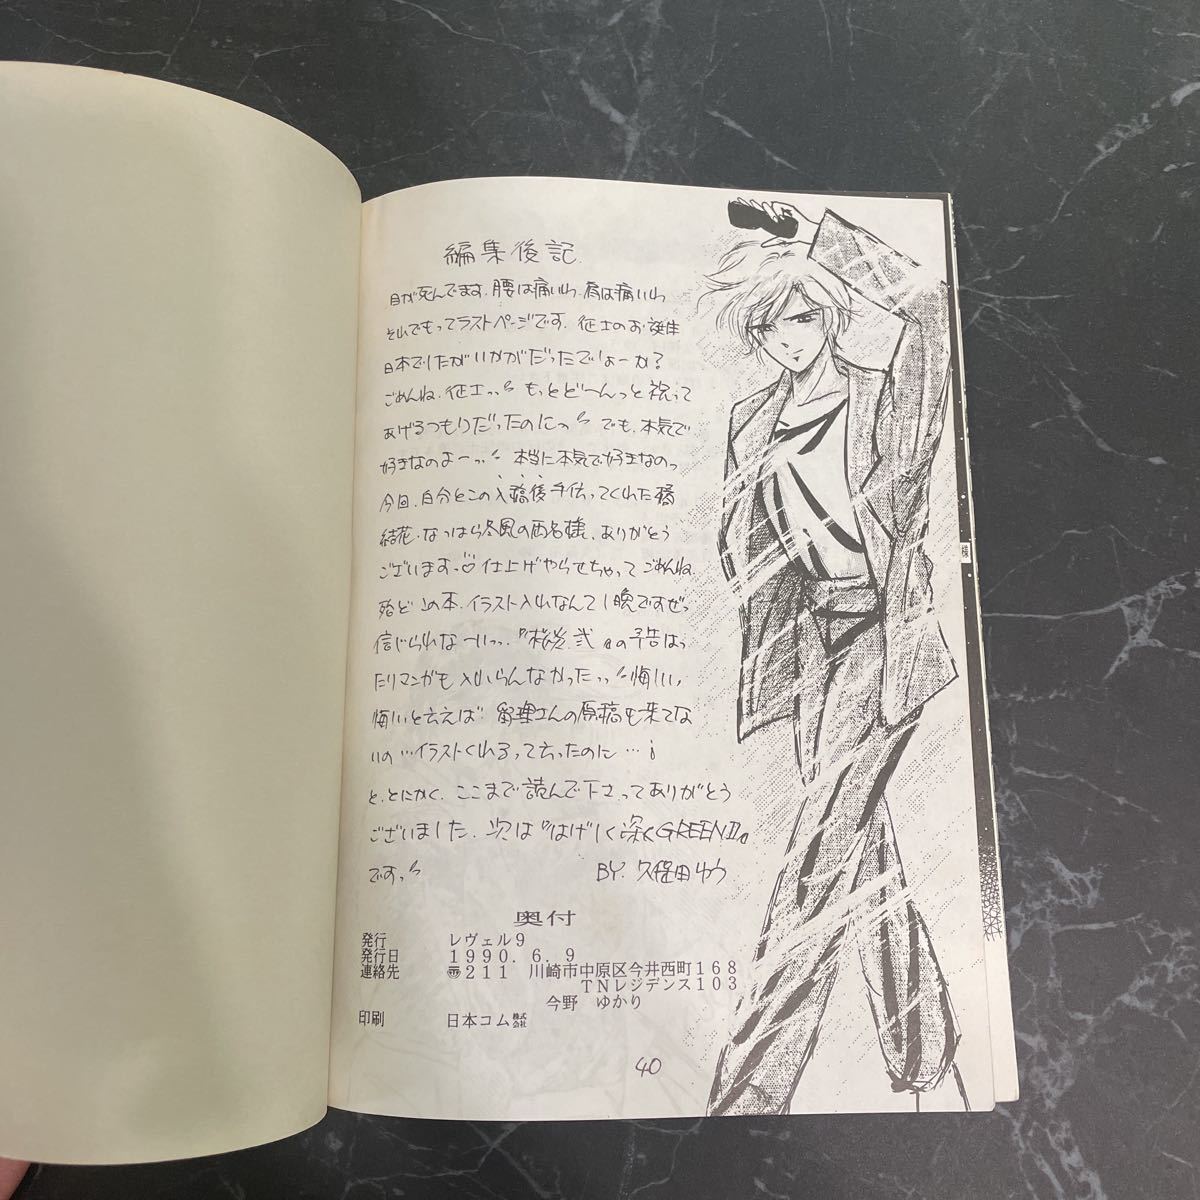 編集後記.
目が死んでます.腰は痛いわ.肩は痛いわ
それでもってラストページです.征士のお誕生
日本でしたがいかがだったでしょーか?
ごめんね.征士っっ もっとど〜んっと祝って
あげるつもりだったのにっ でも、本気で
好きなのよーっっ 本当に本気で好きなのっ
今回、自分とこの入稿後手伝ってくれた橘
結花.なつはら冬風の両名様、ありがとう
ございます♡仕上げやらせちゃってごめんね.
殆どこの本、イラスト入れなんて1晩ですぜっ
信じられなーいっっ.『桜姿 弐』の予告はっ
たりマンガも入いらんなかったっっ 悔しい,
悔しいと云えば 留理さんの原稿も来てな
いの…イラストくれるって云ったのに…
と、とにかく、ここまで読んで下さってありがとう
ございました.次は『はげしく深くGREENⅡ』
ですっっ
BY.久保田ゆう
奥付
発行 レヴェル9
発行日 1990.6.9
連絡先 〠211 川崎市中原区今井西町168
TNレジデンス103
今野 ゆかり
印刷 日本コム株式会社
40
様